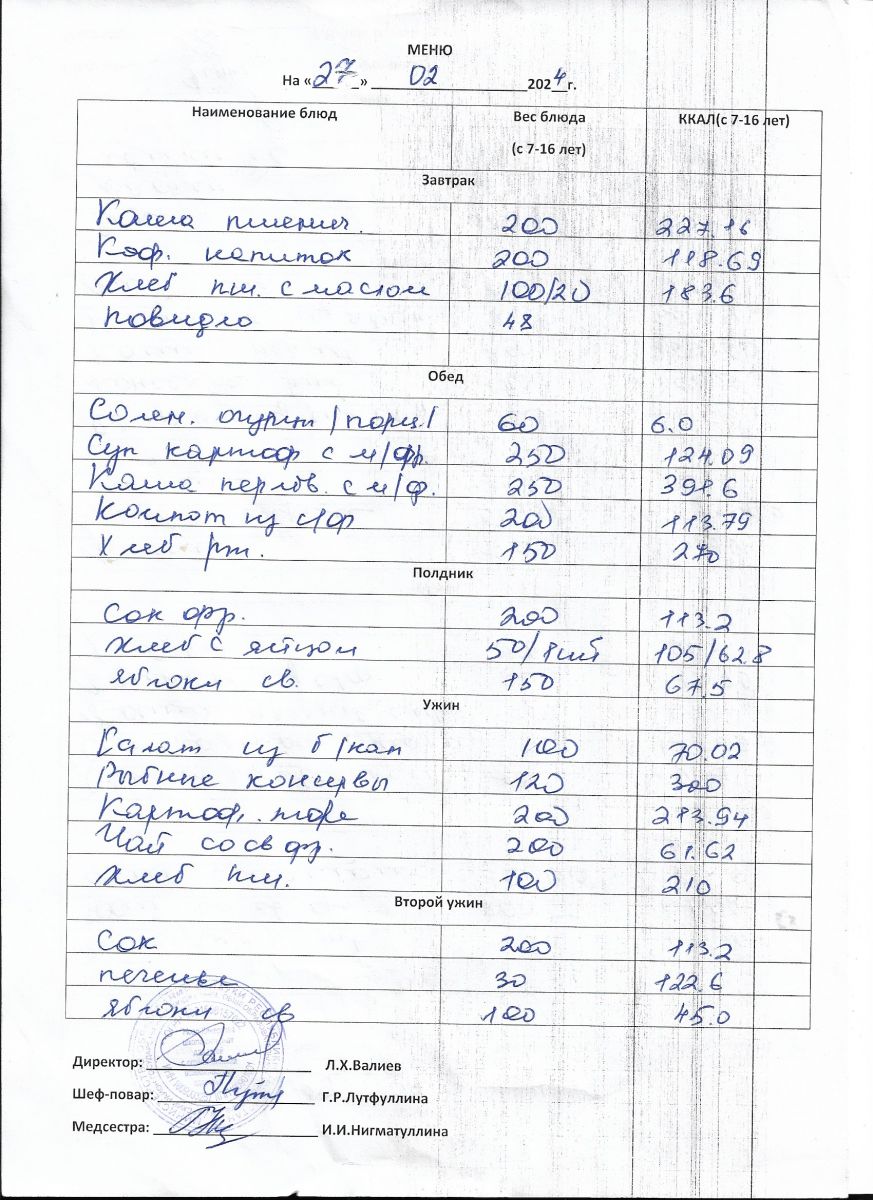 МЕНЮ
На «27» 02 2024 г.
Наименование блюд Вес блюда (с 7-16 лет) ККАЛ(с 7-16 лет)
Завтрак
Каша пшенич. 200 227.16
Коф. напиток 200 118.69
Хлеб пш. с маслом 100/20 183.6
Повидло 48
Обед
Солен. огурцы /порц/ 60 6.0
Суп картоф с м/фр. 250 124.09
Каша перлов. с м/ф. 250 391.6
Компот из с/фр 200 113.79
Хлеб рж. 150 270
Полдник
Сок фр. 200 113.2
Хлеб с яйцом 50/1шт 105/62.8
Яблоки св. 150 67.5
Ужин
Салат из б/кап 100 70.02
Рыбные консервы 120 300
Картоф. пюре 200 213.94
Чай со св фр. 200 61.62
Хлеб пш. 100 210
Второй ужин
Сок 200 113.2
печенье 30 122.6
Яблоки св 100 45.0
Директор: Л.Х.Валиев
Шеф-повар: Г.Р.Лутфуллина
Медсестра: И.И.Нигматуллина